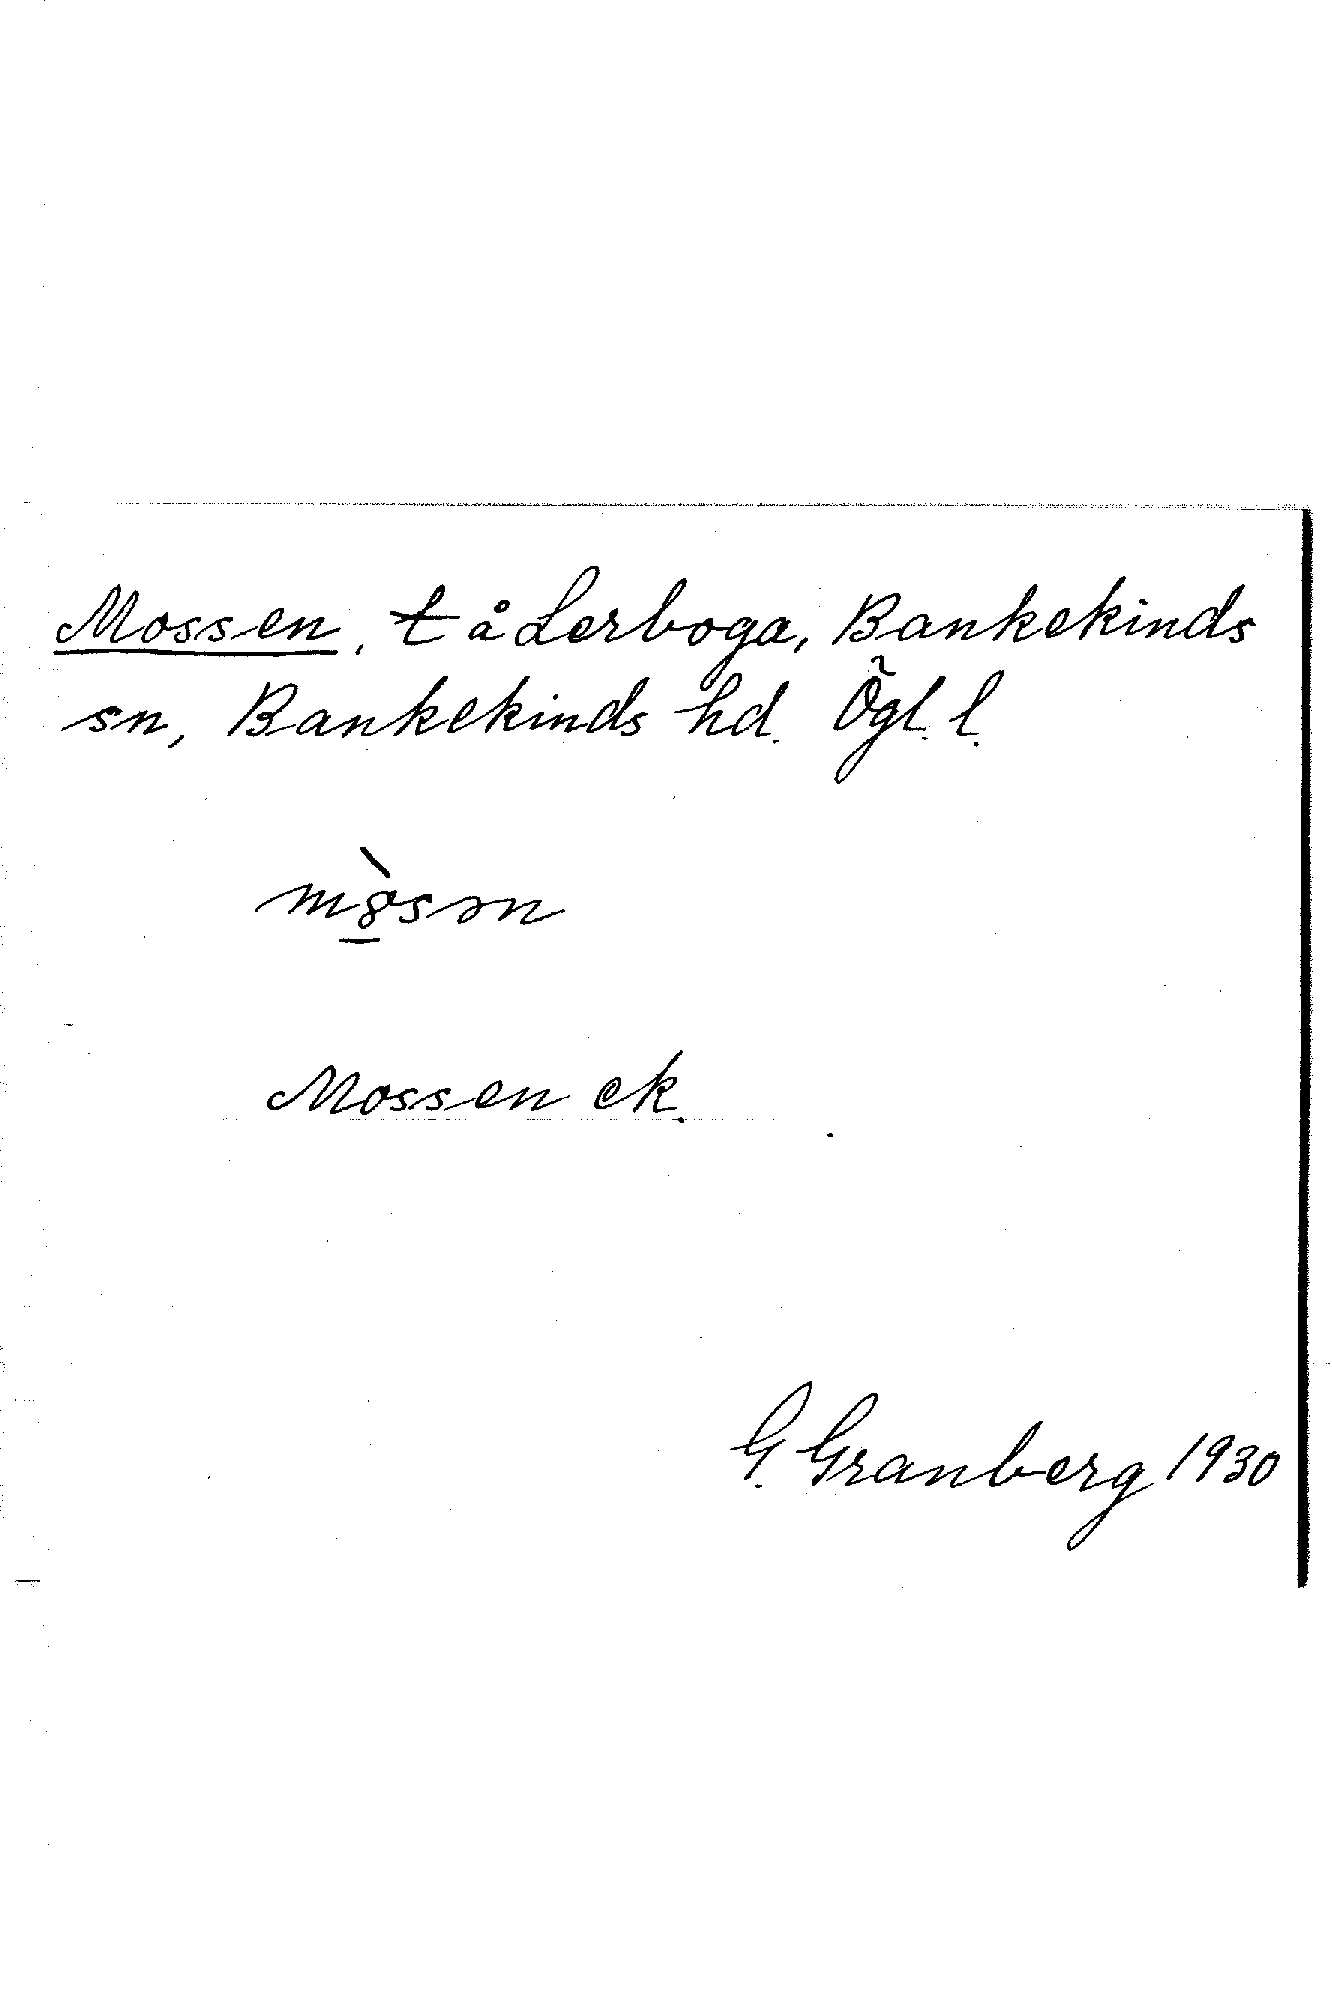 Mossen, t å Lerboga, Bankekinds
sn, Bankekinds hd. Ögl. l.
mòsən
Mossen ek.
G. Granberg 1930